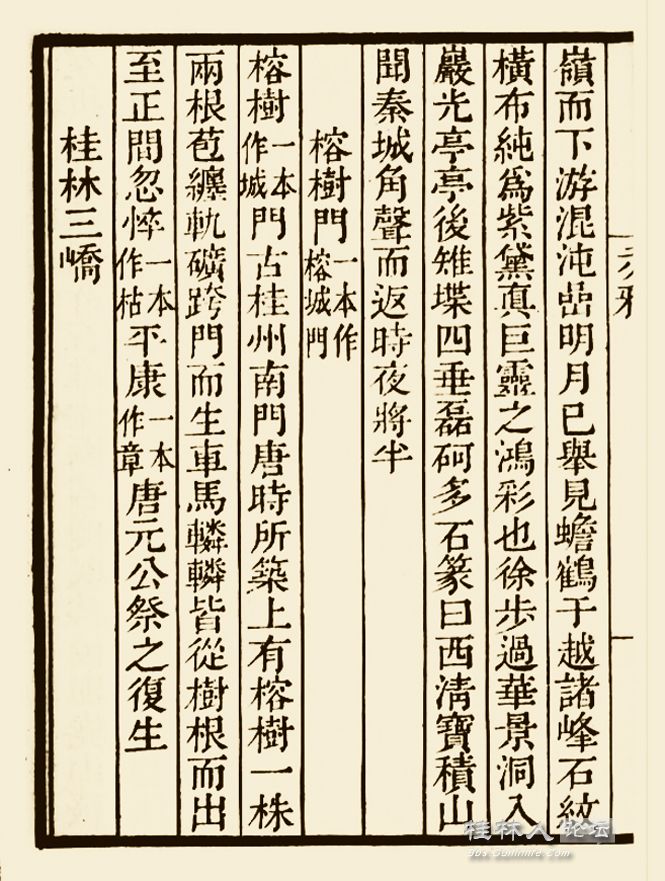 嶺而下游混沌嵒明月已舉見蟾鶴于越諸峰石紋
橫布純爲紫黛真巨靈之鴻彩也徐步過華景洞入
巖光亭亭後雉堞四垂磊砢多石篆曰西淸寶積山
聞秦城角聲而返時夜將半
榕樹門一本作榕城門
榕樹一本作城門古桂州南門唐時所築上有榕樹一株
兩根苞纏軌礦跨門而生車馬轔轔皆從樹根而出
至正間忽悴一本作枯平康一本作章唐元公祭之復生
桂林三嶠
桂林人论坛